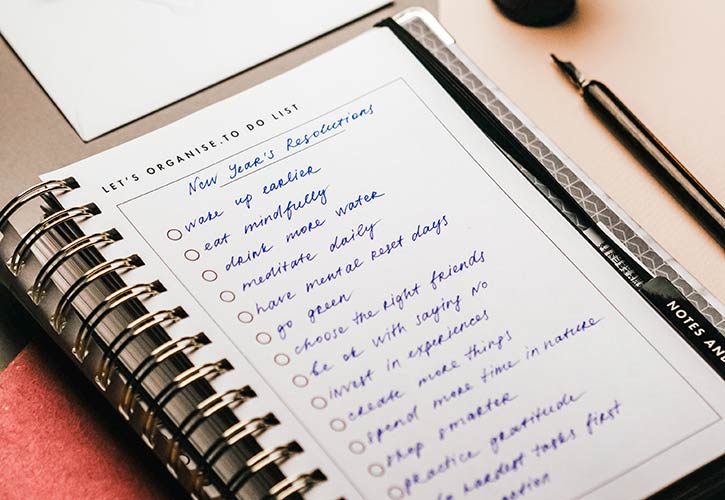 LET'S ORGANISE.TO DO LIST
New Year's Resolutions
wake up earlier
eat mindfully
drink more water
meditate daily
have mental reset days
go green
choose the right friends
be ok with saying No
invest in experiences
create more things
spend more time in nature
shop smarter
practice gratitude
hardest tasks first
NOTES AND